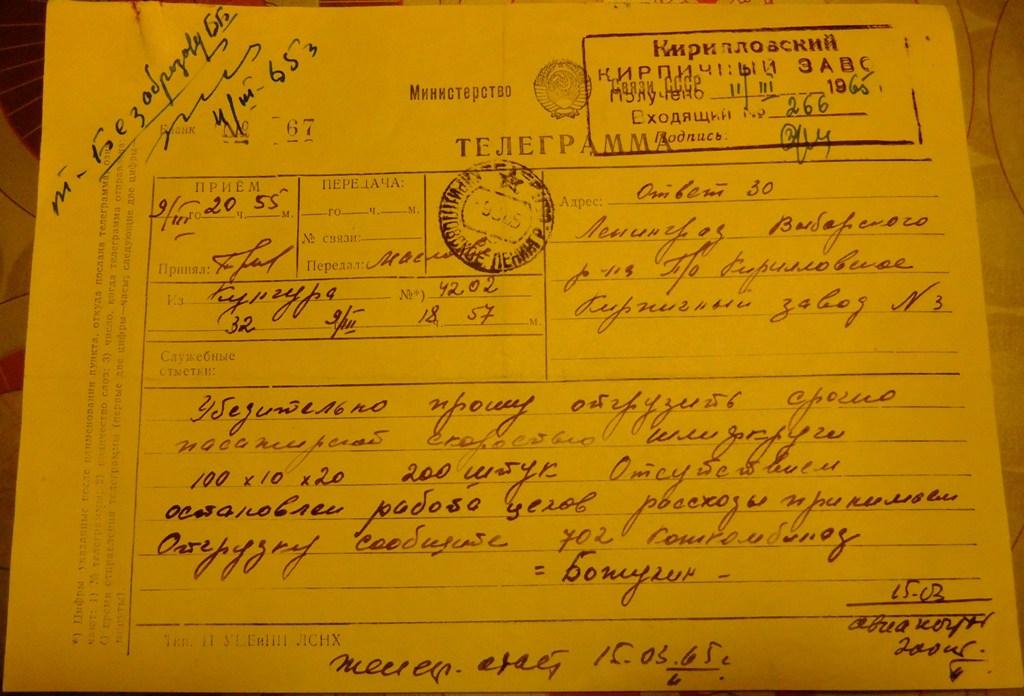 т. Безобразову ББ
11/III-65г
Кирилловский
КИРПИЧНЫЙ ЗАВОД
Получено 11/III 1965
Входящий № 266
Подпись:
Министерство Связи СССР
Бланк № 67
ТЕЛЕГРАММА
ПРИЁМ
9/III го 20 ч. 55 м.
Принял:
ПЕРЕДАЧА:
го ч. м.
№ связи:
Передал:
Из Кунгура №*) 4202
32 9/III 18 ч. 57 м.
Служебные
отметки:
Адрес: Ответ 30
Ленинград Выборского
р-на П/о Кирилловское
Кирпичный завод N 3
Убедительно прошу отгрузить срочно
пасажирской скоростью шлифкруги
100 х 10 х 20 200 штук Отсуйствием
остановлен работа цехов рассходы принимаем
Отгрузку сообщите 702 Кожкомбинат
= Божугин -
15-03
Телегр. ответ 15.03.65г.
*) Цифры указанные после наименования пункта, откуда послана телеграмма, озна-
чают: 1) № телеграммы; 2) количество слов; 3) число, когда телеграмма отправлена;
4) время отправления телеграммы (первые две цифры—часы; следующие две цифры—
минуты).